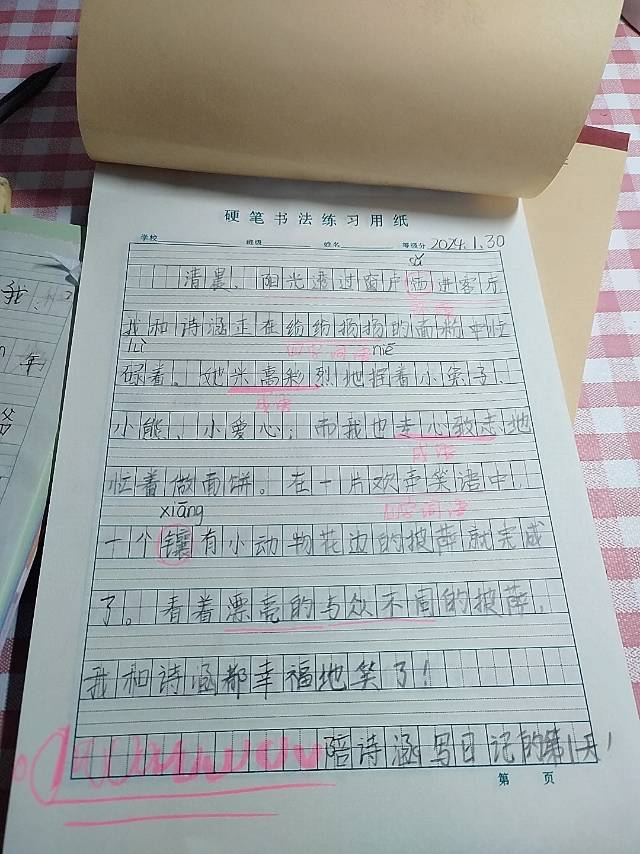 硬笔书法练习用纸
学校 班级 姓名 等级分 2024.1.30
清晨，阳光透过窗户洒进客厅
我和诗涵正在纷纷扬扬的面粉中忙
lù 四字词语 niē
碌着。她兴高彩烈地捏着小兔子、
成语
小熊、小爱心；而我也专心致志地
成语
忙着做面饼。在一片欢声笑语中，
xiāng 四字词语
一个镶有小动物花边的披萨就完成
了。看着漂亮的与众不同的披萨，
我和诗涵都幸福地笑了！
陪诗涵写日记的第1天！
第 页